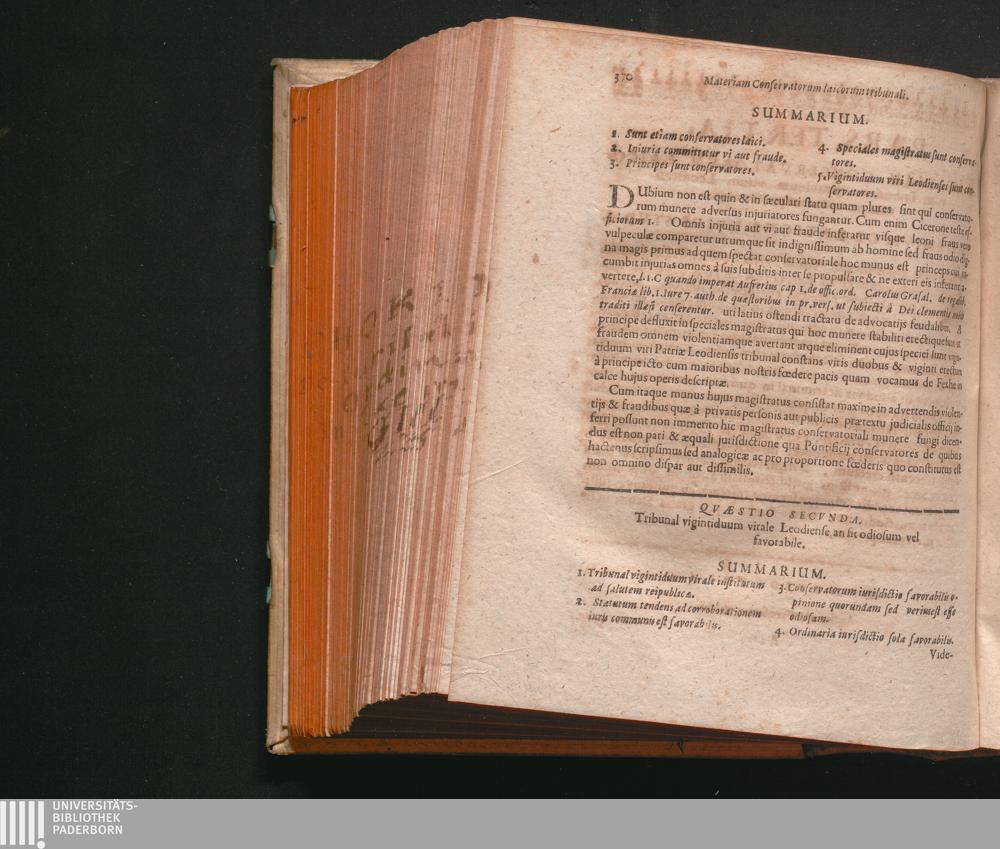 370
Materiam Conservatorum laicorum tribunali.
SUMMARIUM.
1. Sunt etiam conservatores laici.
2. Iniuria committitur vi aut fraude.
3. Principes sunt conservatores.
4. Speciales magistratus sunt conserva-
tores.
5. Vigintiduum viri Leodienses sunt con-
servatores.
DUbium non est quin & in sæculari statu quam plures sint qui conservato-
rum munere adversus injuriatores fungantur. Cum enim Cicerone teste of-
ficiorum 1. Omnis injuria aut vi aut fraude inferatur visque leoni fraus vero
vulpeculæ comparetur utrumque sit indignissimum ab homine sed fraus odio dig-
na magis primus ad quem spectat conservatoriale hoc munus est princeps cui in-
cumbit injurias omnes à suis subditis inter se propulsare & ne exteri eis inferant a-
vertere, l. 1. C quando imperat Aufrerius cap 1. de offic. ord. Carolus Grasal. de regalib.
Franciæ lib. 1. Iure 7. auth. de quæstoribus in pr. vers. ut subiecti à Dei clementia nobis
traditi illæsi conserentur. uti latius ostendi tractatu de advocatijs feudalibus. A
principe defluxit in speciales magistratus qui hoc munere stabiliti erectique sunt ut
fraudem omnem violentiamque avertant atque eliminent cujus speciei sunt vigin-
tiduum viri Patriæ Leodiensis tribunal constans viris duobus & viginti erectum
à principe icto cum maioribus nostris fœdere pacis quam vocamus de Fexhe in
calce hujus operis descriptæ.
Cum itaque munus hujus magistratus consistat maxime in advertendis violen-
tijs & fraudibus quæ à privatis personis aut publicis prætextu judicialis officij in-
ferri possunt non immerito hic magistratus conservatoriali munere fungi dicen-
dus est non pari & æquali jurisdictione qua Pontificij conservatores de quibus
hactenus scripsimus sed analogicæ ac pro proportione fœderis quo constitutus est
non omnino dispar aut dissimilis.
QVÆSTIO SECVNDA.
Tribunal vigintiduum virale Leodiense an sit odiosum vel
favorabile.
SUMMARIUM.
1. Tribunal vigintiduum virale institutum
ad salutem reipublicæ.
2. Statutum tendens ad corroborationem
iuris communis est favorabilis.
3. Conservatorum iurisdictio favorabilis o-
pinione quorundam sed verius est esse
odiosam.
4. Ordinaria iurisdictio sola favorabilis.
Vide-
UNIVERSITÄTS-
BIBLIOTHEK
PADERBORN